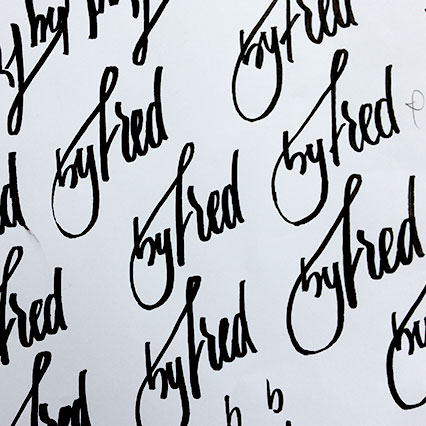 by by
byfred
byfred
byfred
byfred
byfred
fred
byfred
fred
b b